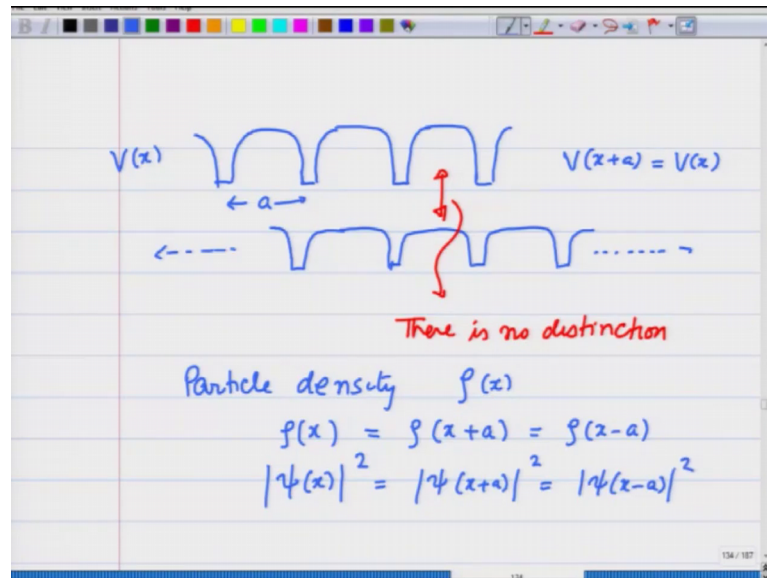 V(x)
V(x+a) = V(x)
← a →
There is no distinction
Particle density ρ(x)
ρ(x) = ρ(x+a) = ρ(x-a)
|ψ(x)|² = |ψ(x+a)|² = |ψ(x-a)|²
134 / 187